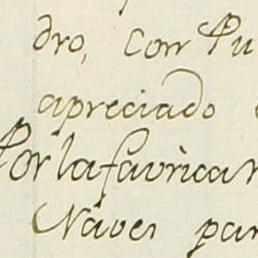 dro, Con Pu
apreciado
Por la favrica
Naves par